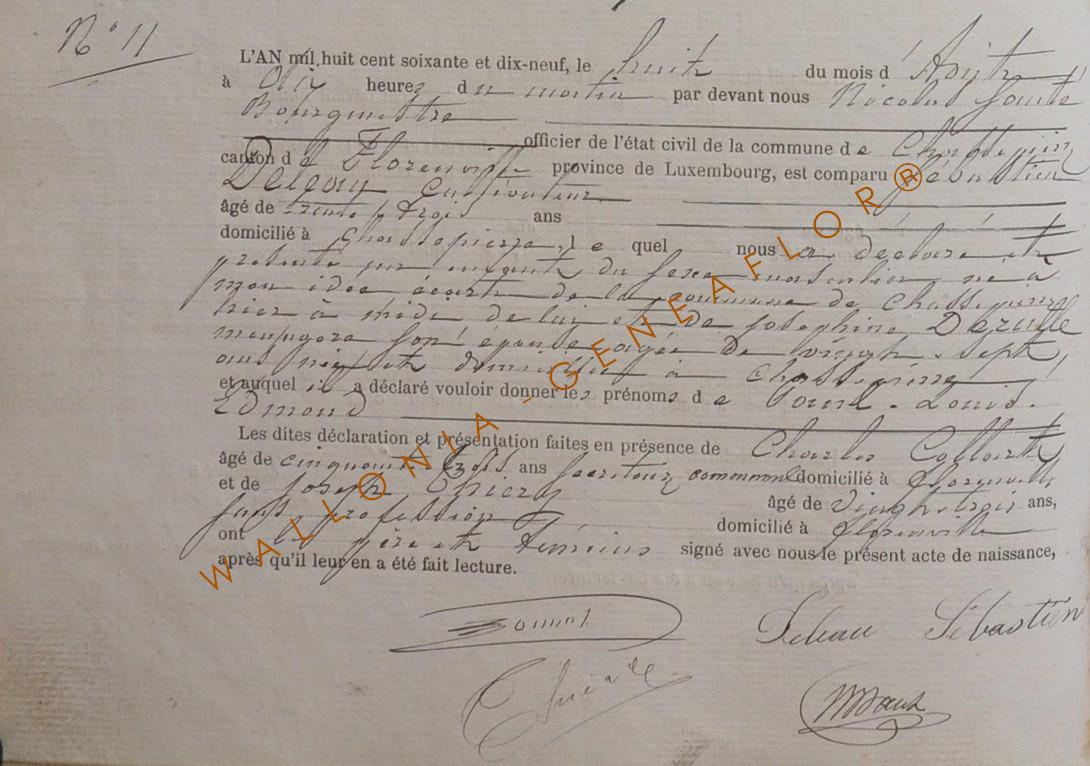 N° 11
L'AN mil huit cent soixante et dix-neuf, le huit du mois d'
à dix heures du matin par devant nous Nicolas
Bourgmestre
officier de l'état civil de la commune de Chassepierre
canton de Florenville province de Luxembourg, est comparu Sébastien
cultivateur
âgé de trente trois ans
domicilié à Chassepierre, le quel nous a déclaré et
présenté un enfant du sexe masculin né à
écart de la commune de Chassepierre
hier à midi de lui et de Joséphine
ménagère son épouse agée de vingt-sept
ans domiciliée à Chassepierre
et auquel il a déclaré vouloir donner les prénoms de Louis.
Edmond
Les dites déclaration et présentation faites en présence de Charles
âgé de cinquante ans secrétaire communal domicilié à Florenville
et de Joseph Thiery âgé de Vingt trois ans,
sans profession domicilié à Florenville
ont les père et témoins signé avec nous le présent acte de naissance,
après qu'il leur en a été fait lecture.
WALLONIA - GENEAFLOR®
Sébastien